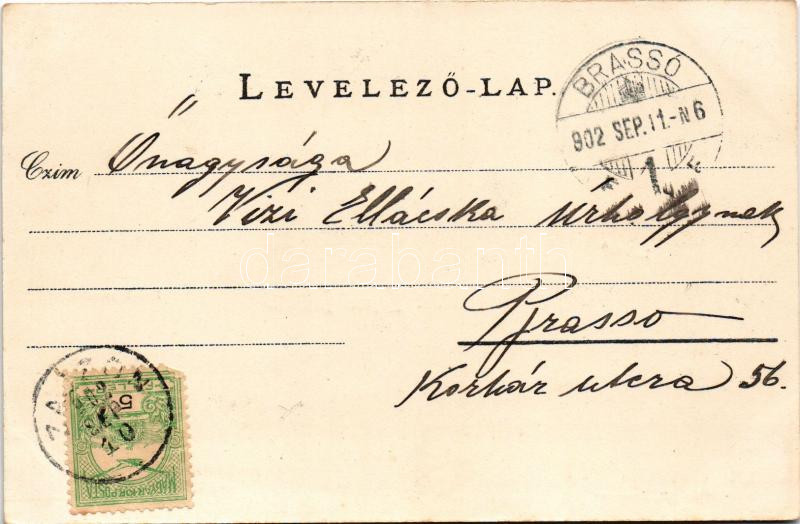 LEVELEZŐ-LAP.
BRASSÓ
902 SEP.11.-N6
1
Czim Őnagysága
Vizi Ellácska Úrhölgynek
Brasso
Korház utcza 56.
darabanth
ZAJZON
902
SEP
10
5
MAGYAR KIR. POSTA